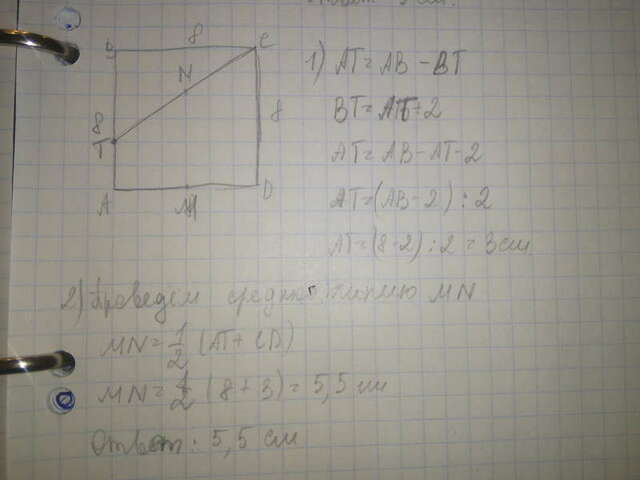 8
B
C
N
8
8
T
A
M
D
1) AT = AB - BT
BT = AT + 2
AT = AB - AT - 2
AT = (AB - 2) : 2
AT = (8 - 2) : 2 = 3 см
2) Проведём среднюю линию MN
MN = 1/2 (AT + CD)
MN = 1/2 (8 + 3) = 5,5 см
Ответ: 5,5 см